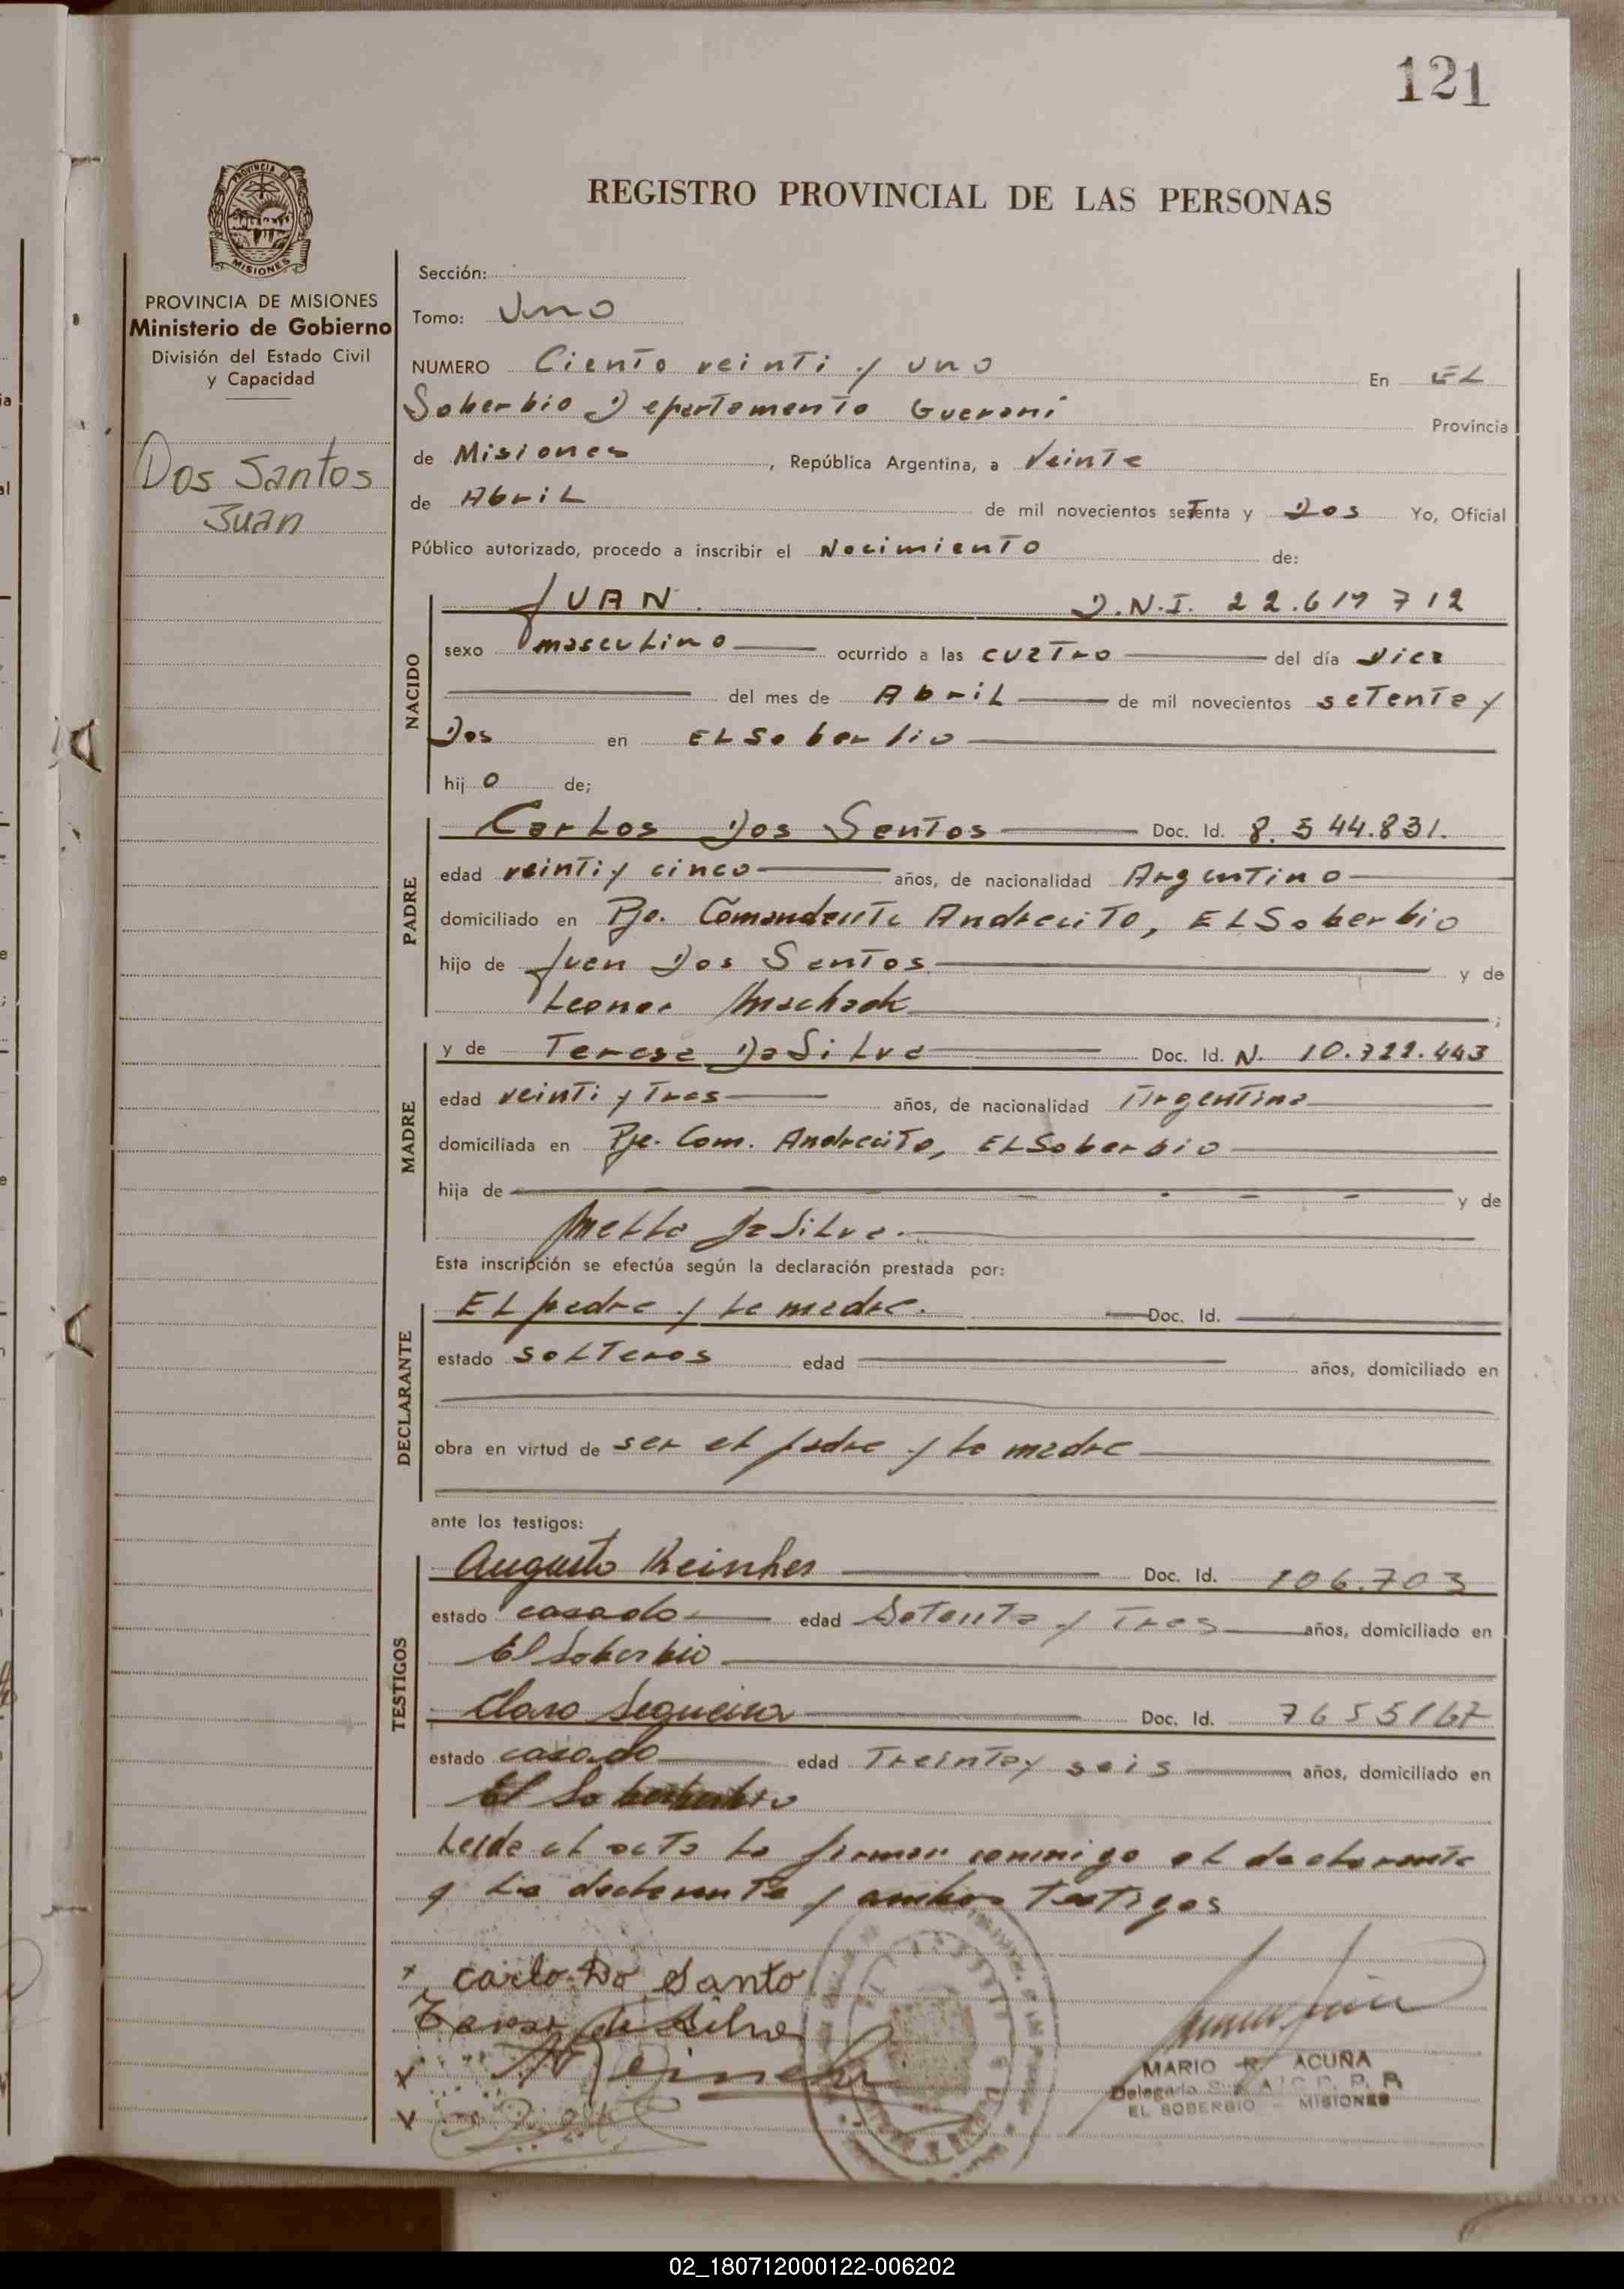 121
REGISTRO PROVINCIAL DE LAS PERSONAS
PROVINCIA DE
MISIONES
PROVINCIA DE MISIONES
Ministerio de Gobierno
División del Estado Civil
y Capacidad
Dos Santos
Juan
Sección:
Tomo: Uno
NUMERO Ciento veinti y uno En EL
Soberbio Departamento Guaraní Provincia
de Misiones, República Argentina, a Veinte
de Abril de mil novecientos setenta y Dos Yo, Oficial
Público autorizado, procedo a inscribir el Nacimiento de:
NACIDO
JUAN. D.N.I. 22.617 712
sexo masculino ocurrido a las cuatro del día diez
del mes de Abril de mil novecientos setenta y
Dos en EL Soberbio
hijo de;
PADRE
Carlos Dos Santos Doc. Id. 8.544.831.
edad veinti y cinco años, de nacionalidad Argentino
domiciliado en Pje. Comandante Andrecito, EL Soberbio
hijo de Juan Dos Santos y de
Leonor Machado ;
MADRE
y de Teresa Da Silva Doc. Id. N. 10.722.443
edad veinti y tres años, de nacionalidad Argentina
domiciliada en Pje. Com. Andrecito, EL Soberbio
hija de y de
Mello Da Silva.
Esta inscripción se efectúa según la declaración prestada por:
DECLARANTE
EL padre y la madre. Doc. Id.
estado solteros edad años, domiciliado en
obra en virtud de ser el padre y la madre
ante los testigos:
TESTIGOS
Augusto Reinher Doc. Id. 106.703
estado casado edad Setenta y Tres años, domiciliado en
El Soberbio
Claro Sequeira Doc. Id. 7655167
estado casado edad Treinta y seis años, domiciliado en
El Soberbio
Leida el acta la firman conmigo el declarante
y la declarante y ambos testigos
x Carlo Do Santo
MARIO R. ACUÑA
Delegado
EL SOBERBIO - MISIONES
02_180712000122-006202